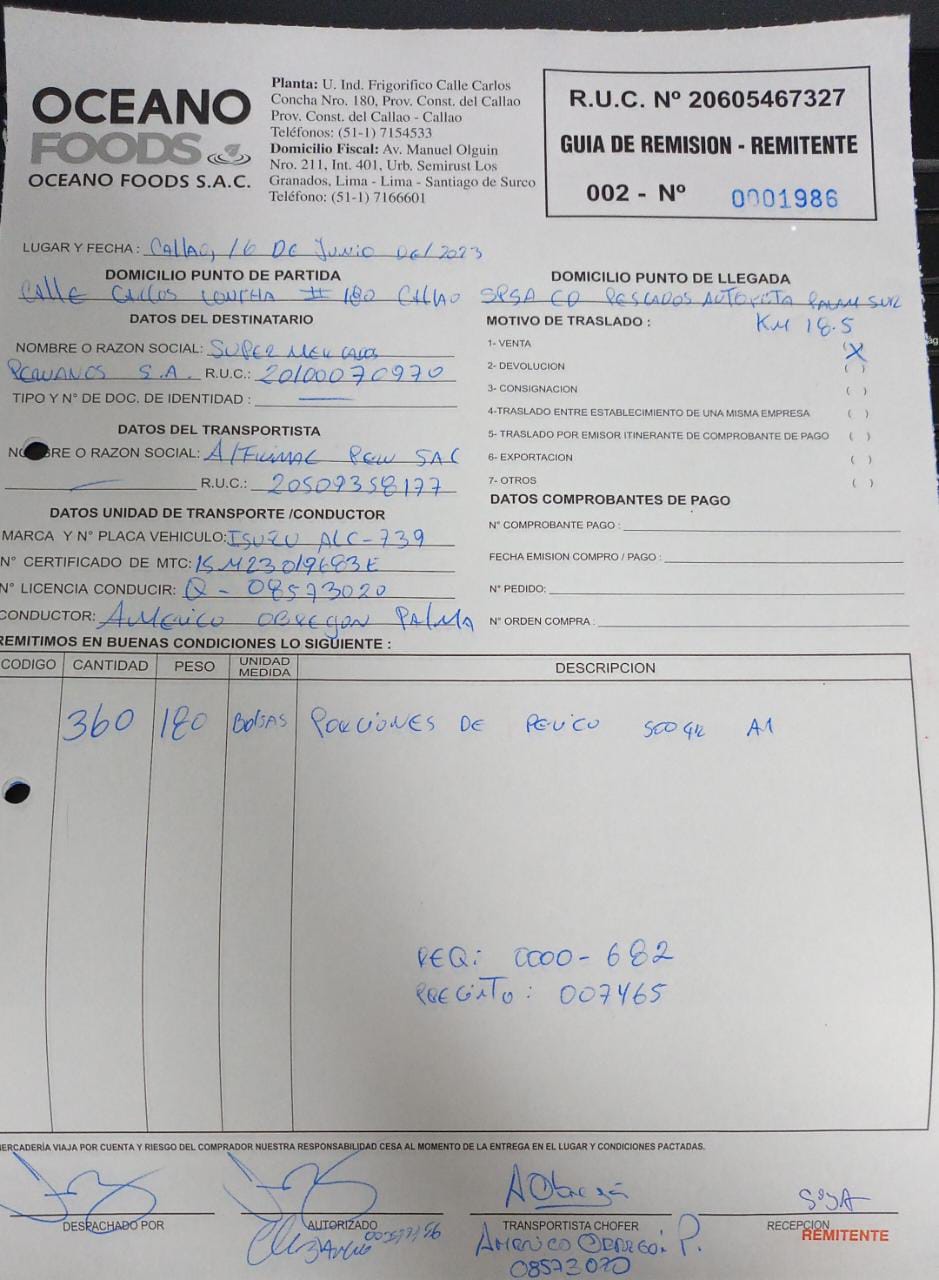 OCEANO
FOODS
OCEANO FOODS S.A.C.
Planta: U. Ind. Frigorifico Calle Carlos
Concha Nro. 180, Prov. Const. del Callao
Prov. Const. del Callao - Callao
Teléfonos: (51-1) 7154533
Domicilio Fiscal: Av. Manuel Olguin
Nro. 211, Int. 401, Urb. Semirust Los
Granados, Lima - Lima - Santiago de Surco
Teléfono: (51-1) 7166601
R.U.C. Nº 20605467327
GUIA DE REMISION - REMITENTE
002 - Nº 0001986
LUGAR Y FECHA: Callao, 16 DE Junio Del 2023
DOMICILIO PUNTO DE PARTIDA
Calle Carlos Concha # 180 Callao
DOMICILIO PUNTO DE LLEGADA
SPSA CD PESCADOS AUTOPISTA PANAM SUR
KM 18.5
DATOS DEL DESTINATARIO
NOMBRE O RAZON SOCIAL: SUPER MERCADOS
PERUANOS S.A. R.U.C.: 20100070970
TIPO Y N° DE DOC. DE IDENTIDAD :
DATOS DEL TRANSPORTISTA
NOMBRE O RAZON SOCIAL: PERU SAC
R.U.C.: 20509358177
DATOS UNIDAD DE TRANSPORTE /CONDUCTOR
MARCA Y N° PLACA VEHICULO: ISUZU ALC-739
N° CERTIFICADO DE MTC: 15M23019683E
N° LICENCIA CONDUCIR: Q - 08573020
CONDUCTOR: AMERICO OBREGON PALMA
MOTIVO DE TRASLADO :
1- VENTA (X)
2- DEVOLUCION ( )
3- CONSIGNACION ( )
4-TRASLADO ENTRE ESTABLECIMIENTO DE UNA MISMA EMPRESA ( )
5- TRASLADO POR EMISOR ITINERANTE DE COMPROBANTE DE PAGO ( )
6- EXPORTACION ( )
7- OTROS ( )
DATOS COMPROBANTES DE PAGO
N° COMPROBANTE PAGO :
FECHA EMISION COMPRO / PAGO :
N° PEDIDO:
N° ORDEN COMPRA :
REMITIMOS EN BUENAS CONDICIONES LO SIGUIENTE :
CODIGO CANTIDAD PESO UNIDAD MEDIDA DESCRIPCION
360 180 BOLSAS PORCIONES DE PERICO 500 GR A1
REQ: 0000-682
PRECINTO: 007465
MERCADERÍA VIAJA POR CUENTA Y RIESGO DEL COMPRADOR NUESTRA RESPONSABILIDAD CESA AL MOMENTO DE LA ENTREGA EN EL LUGAR Y CONDICIONES PACTADAS.
DESPACHADO POR
AUTORIZADO
TRANSPORTISTA CHOFER
AMERICO OBREGON P.
08573020
RECEPCION
REMITENTE